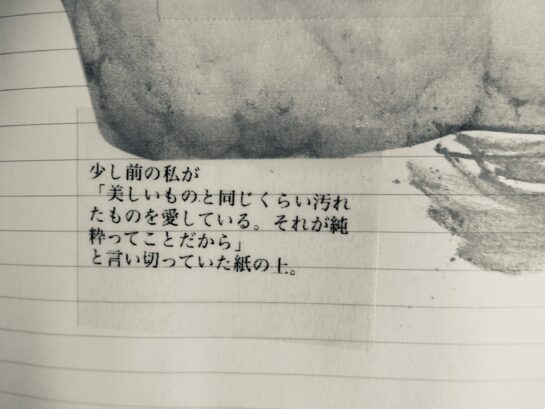 少し前の私が
「美しいものと同じくらい汚れ
たものを愛している。それが純
粋ってことだから」
と言い切っていた紙の上。